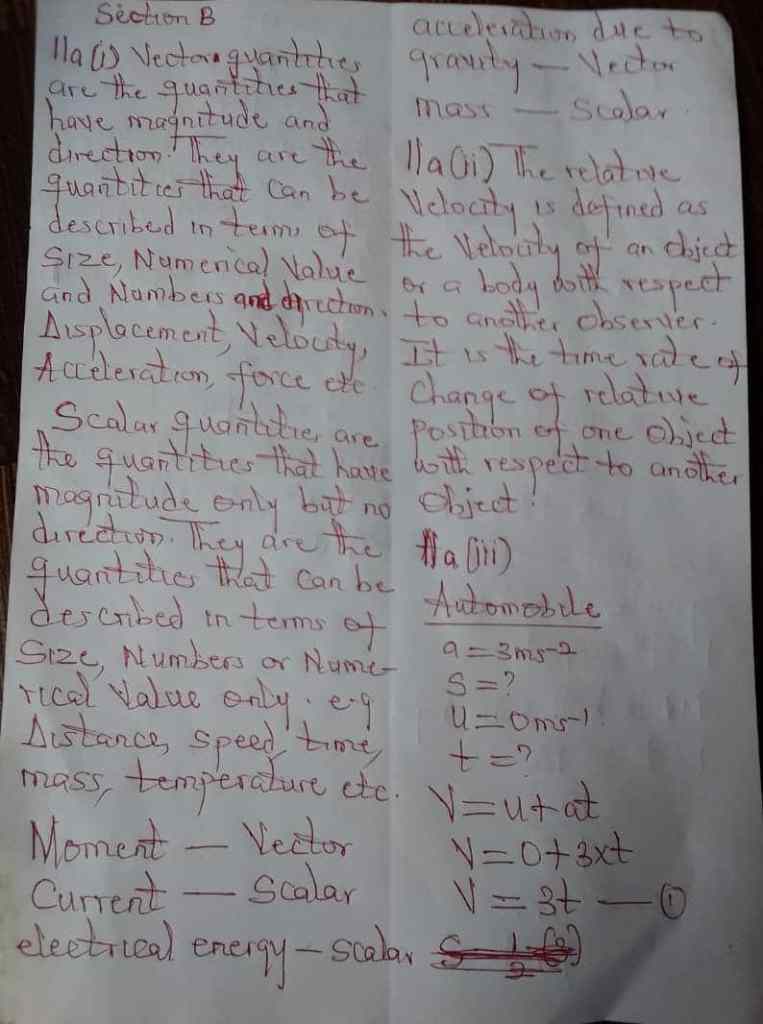 Section B
11a(i) Vector quantities
are the quantities that
have magnitude and
direction. They are the
quantities that can be
described in terms of
Size, Numerical Value
and Numbers and direction.
Displacement, Velocity,
Acceleration, force etc.
Scalar quantities are
the quantities that have
magnitude only but no
direction. They are the
quantities that can be
described in terms of
Size, Numbers or Nume-
rical Value only. e.g
Distance, speed, time,
mass, temperature etc.
Moment — Vector
Current — Scalar
electrical energy – scalar
acceleration due to
gravity — Vector
mass — Scalar.
11a(ii) The relative
Velocity is defined as
the Velocity of an object
or a body with respect
to another observer.
It is the time rate of
Change of relative
position of one object
with respect to another
object.
11a(iii)
Automobile
a = 3ms-2
S = ?
u = 0ms-1
t = ?
V = u + at
V = 0 + 3xt
V = 3t — ①